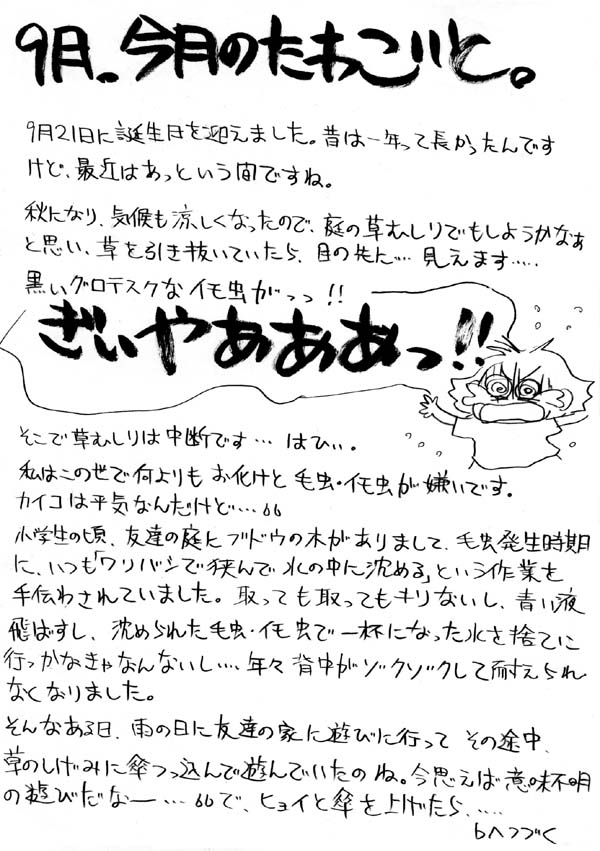 9月。今月のたわごと。
9月21日に誕生日を迎えました。昔は一年って長かったんです
けど、最近はあっという間ですね。
秋になり、気候も涼しくなったので、庭の草むしりでもしようかなぁ
と思い、草を引き抜いていたら、目の先に…. 見えます.....
黒いグロテスクなイモ虫がっっ!!
ぎぃやあああっ!!
そこで草むしりは中断です… はひぃ。
私はこの世で何よりも お化けと 毛虫・イモ虫が嫌いです。
カイコは平気なんだけど…
小学生の頃、友達の庭にブドウの木がありまして、毛虫発生時期
に、いつも「ワリバシで挟んで水の中に沈める」という作業を
手伝わされていました。取っても取ってもキリないし、青い液
飛ばすし、沈められた毛虫・イモ虫で一杯になった水を捨てに
行っかなきゃなんないし…. 年々背中がゾクゾクして耐えられ
なくなりました。
そんなある日、雨の日に友達の家に遊びに行って その途中、
草のしげみに傘つっ込んで遊んでいたのね。今思えば意味不明
の遊びだなー… で、ヒョイと傘を上げたら、.....
へつづく